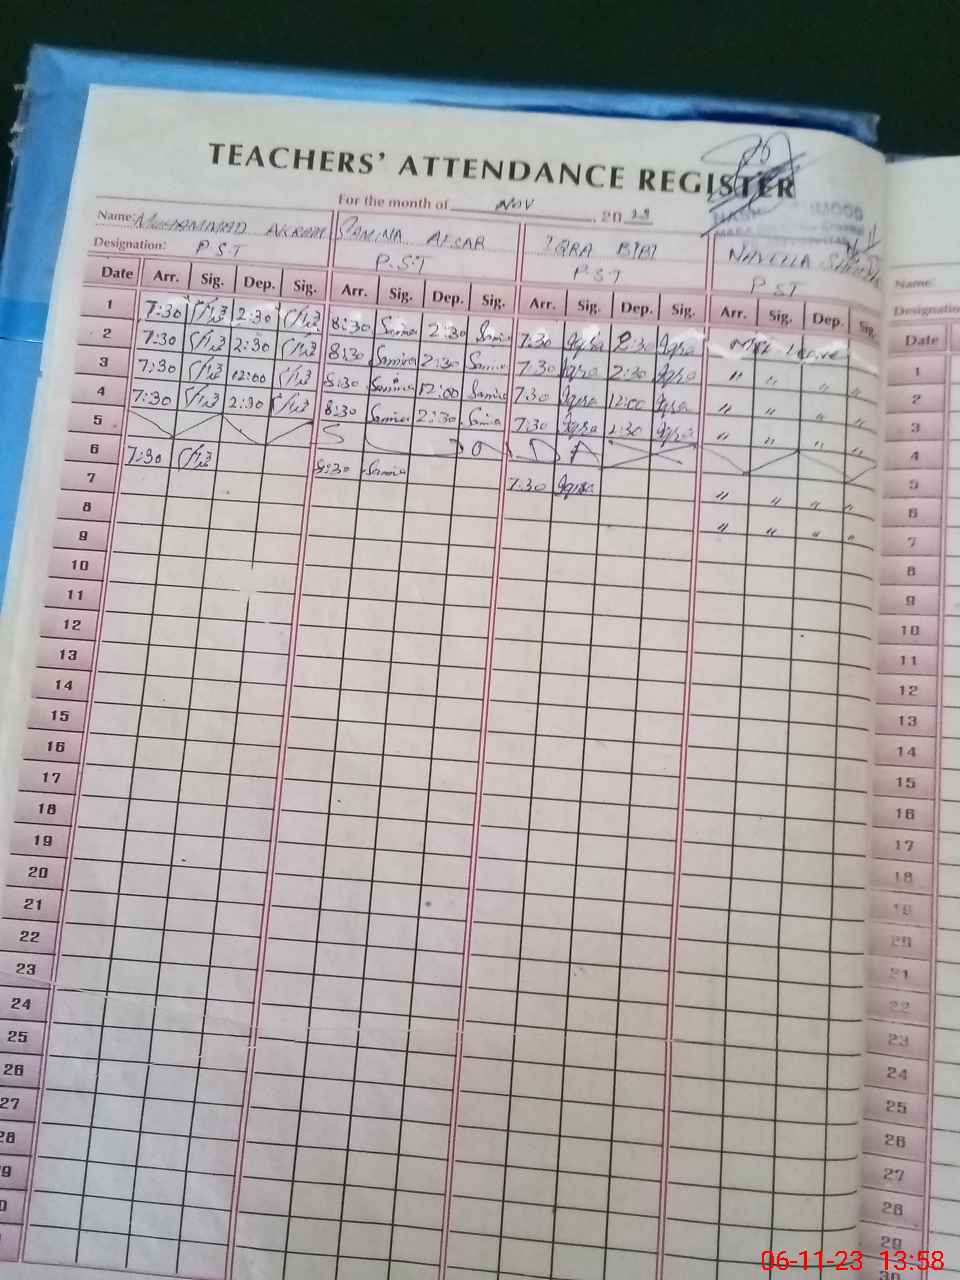 TEACHERS' ATTENDANCE REGISTER
For the month of NOV, 2023
Name: MUHAMMAD AKRAM SAMINA AFSAR IQRA BIBI NAVEELA
Designation: P.S.T P.S.T P.S.T P.S.T
Date Arr. Sig. Dep. Sig. Arr. Sig. Dep. Sig. Arr. Sig. Dep. Sig. Arr. Sig. Dep. Sig.
1 7:30 2:30 8:30 Samina 2:30 Samina 7:30 Iqra 2:30 Iqra Leave
2 7:30 2:30 8:30 Samina 2:30 Samina 7:30 Iqra 2:30 Iqra " " " "
3 7:30 12:00 8:30 Samina 12:00 Samina 7:30 Iqra 12:00 Iqra " " " "
4 7:30 2:30 8:30 Samina 2:30 Samina 7:30 Iqra 2:30 Iqra " " " "
5 S U N D A Y
6 7:30 8:30 Samina 7:30 Iqra " " " "
7 " " " "
8
9
10
11
12
13
14
15
16
17
18
19
20
21
22
23
24
25
26
27
28
Name:
Date
1
2
3
4
5
6
7
8
9
10
11
12
13
14
15
16
17
18
19
20
21
22
23
24
25
26
27
28
29
30
06-11-23 13:58